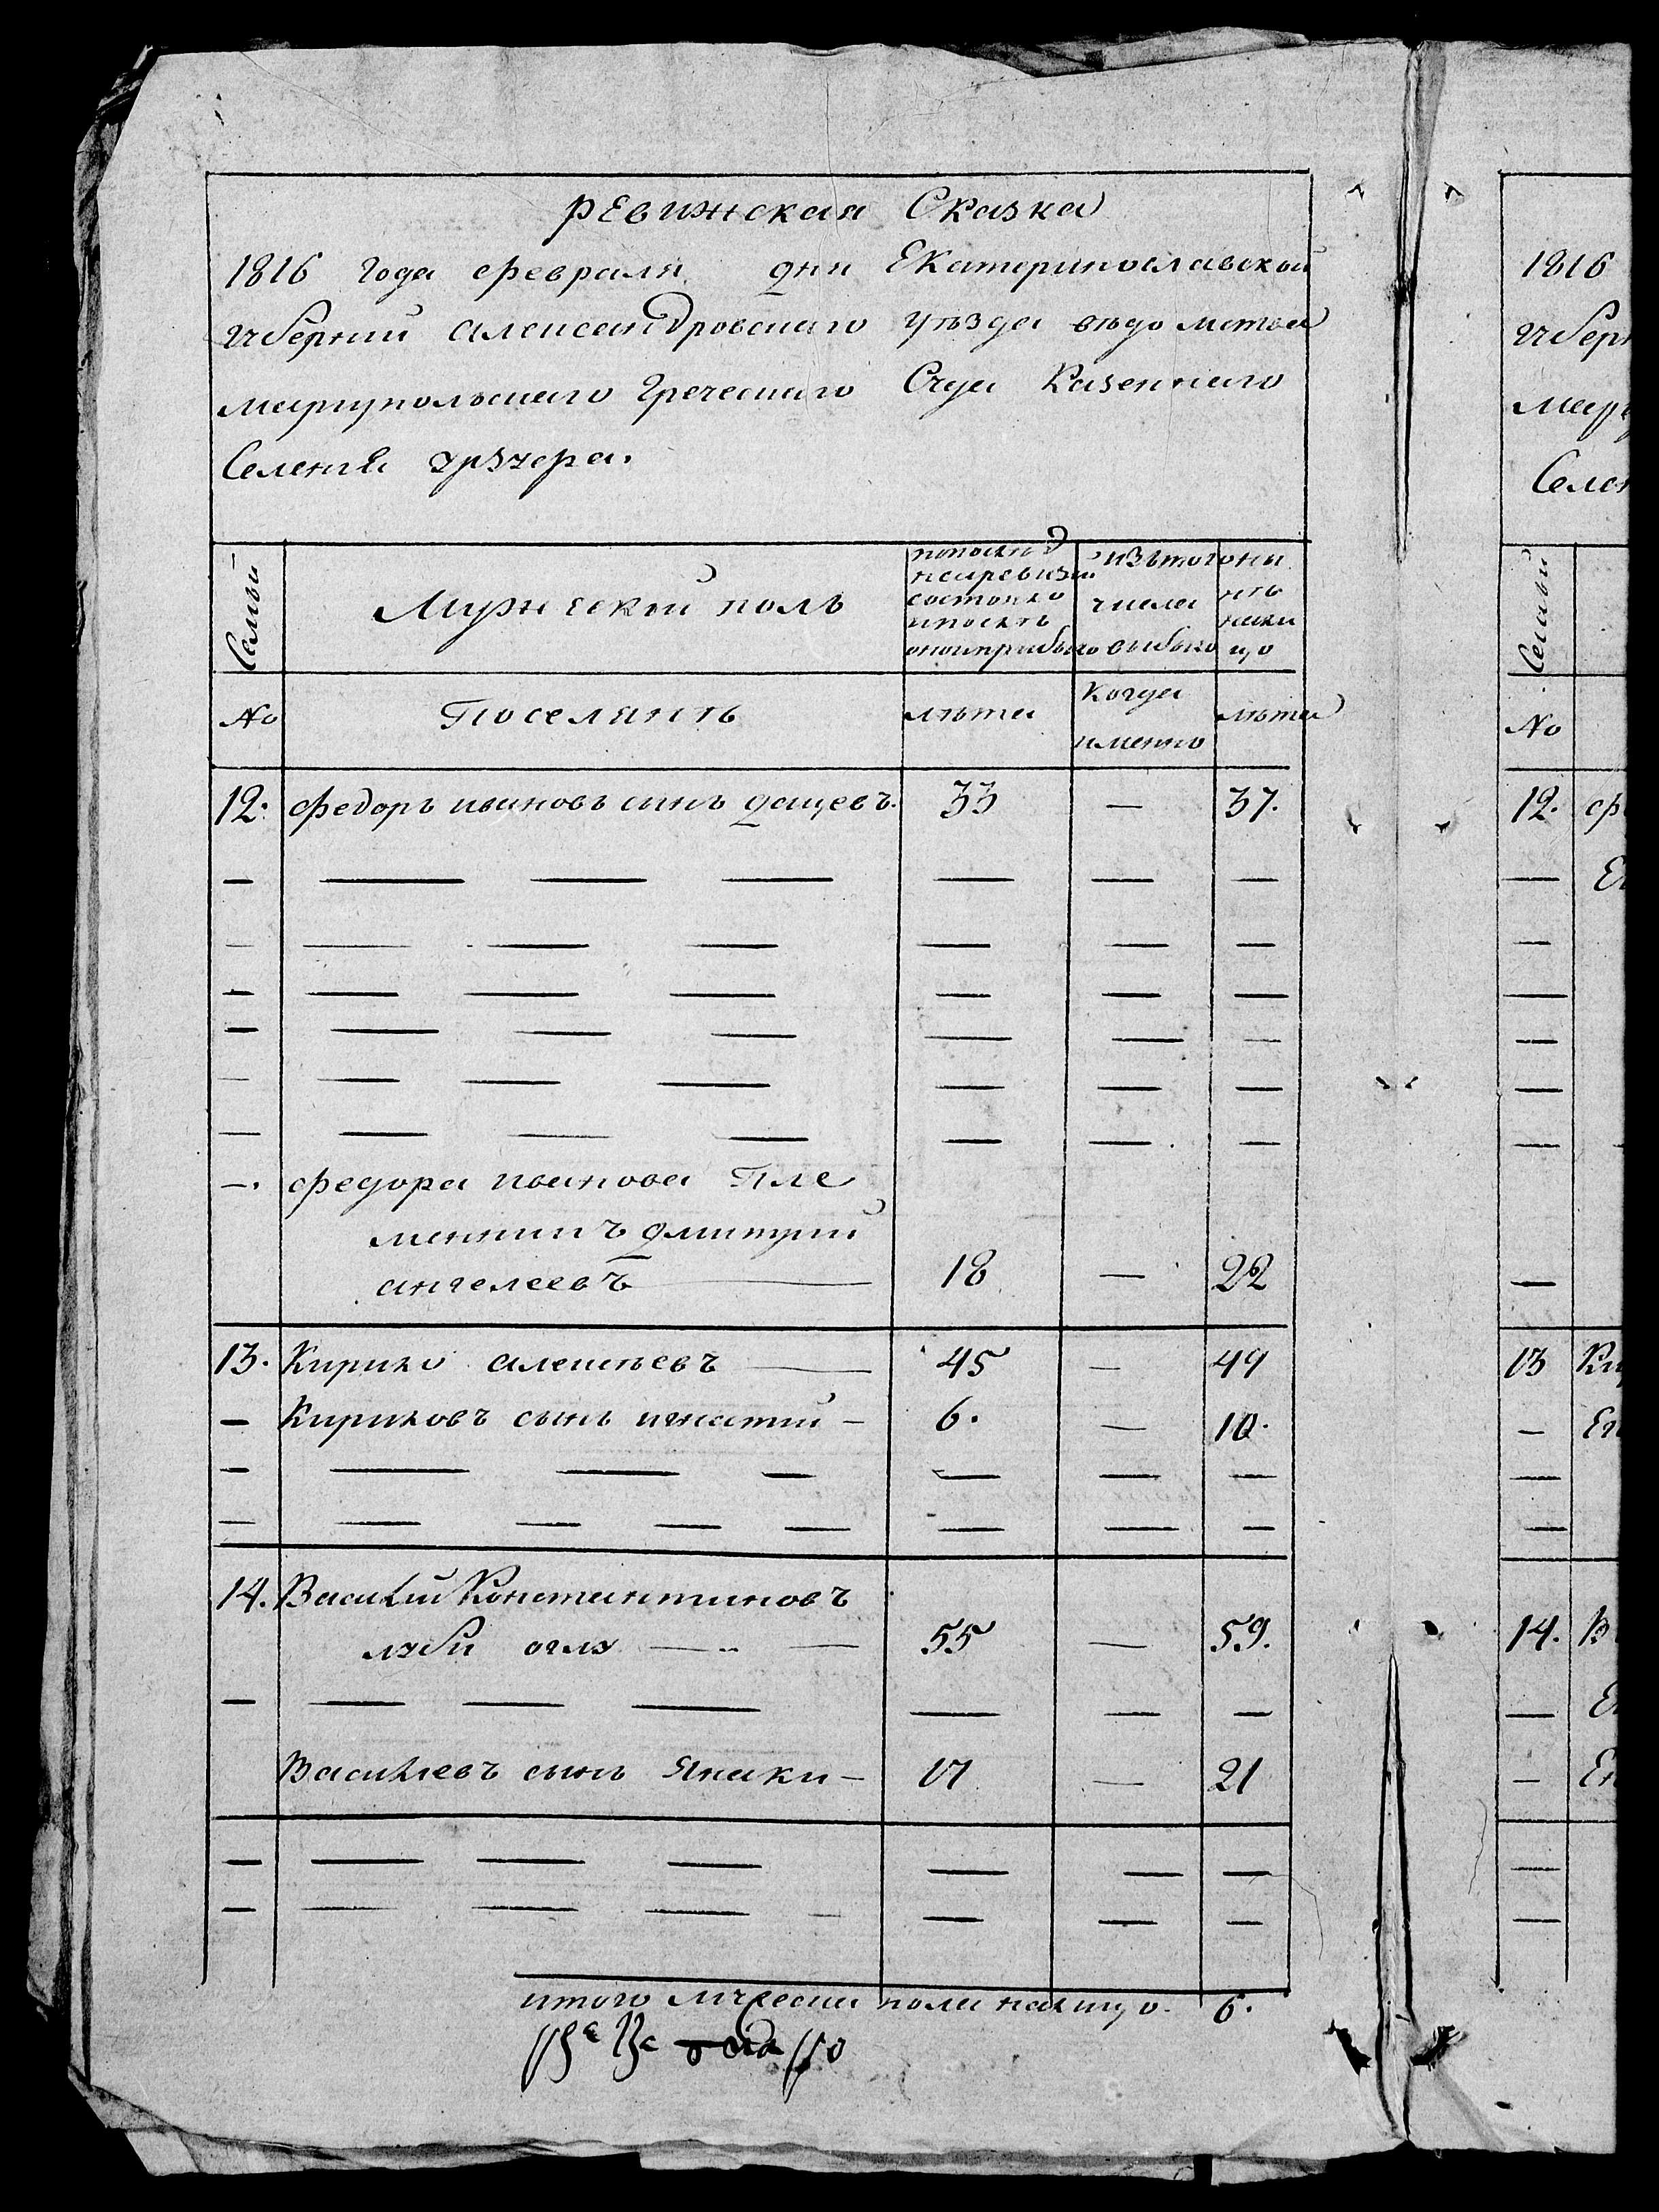 ревижская Сказка
1816 года февраля дня Екатеринославской
губерний александровскаго уѣзда вѣдомства
мариупольскаго Греческаго Суда Казеннаго
Селения
Семьи
Мужеский полъ
изътого
числа
выбыло
ны
нѣ
нали
цо
№
Поселянъ
лѣта
когда
именно
лѣта
12. федоръ ивановъ синъ дацевъ. 33 — 37.
— — — — — — —
— — — — — — —
— — — — — — —
— — — — — — —
— — — — — — —
— — — — — — —
—. федора иванова пле
менникъ дмитрий
ангелеевъ — 18 — 22
13. Кирико алексѣевъ — 45 — 49
— Кириковъ сынъ игнатий — 6. — 10.
— — — — — — —
— — — — — — — —
14. Василий Константиновъ
оглу — — 55 — 59.
— — — — — — —
Васильевъ сынъ Янаки — 17 — 21
— — — — — — —
— — — — — — — —
итого мужеска пола налицо. 6.
1816
губерн
мари
Селен
Семьи
№
12. ф
— Е
—
—
—
—
—
—
13 Ки
— Ег
—
—
14. В
— Е
— Е
—
—